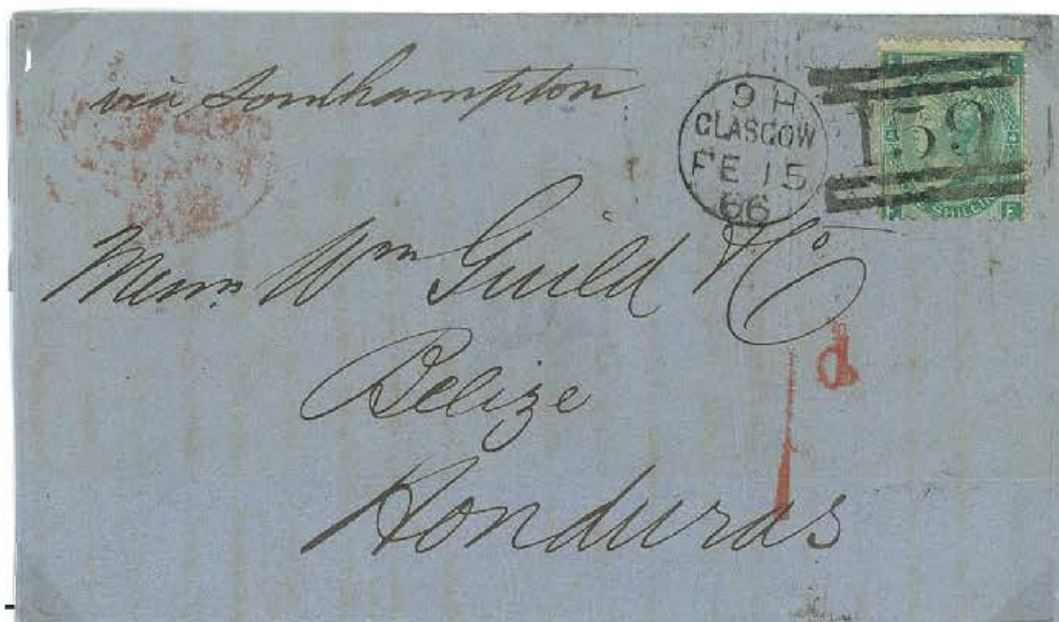 via Southampton
9 H
GLASGOW
FE 15
66
159
SHILLING
F F
Messrs Wm Guild & Co
1d
Belize
Honduras